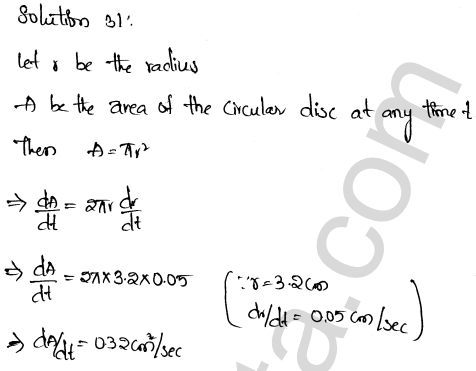 Solution 31:
Let r be the radius
A be the area of the circular disc at any time t
Then A = πr²
⇒ dA/dt = 2πr dr/dt
⇒ dA/dt = 2π×3.2×0.05 (∵ r = 3.2 cm
dr/dt = 0.05 cm/sec)
⇒ dA/dt = 0.32 cm²/sec
ta.com